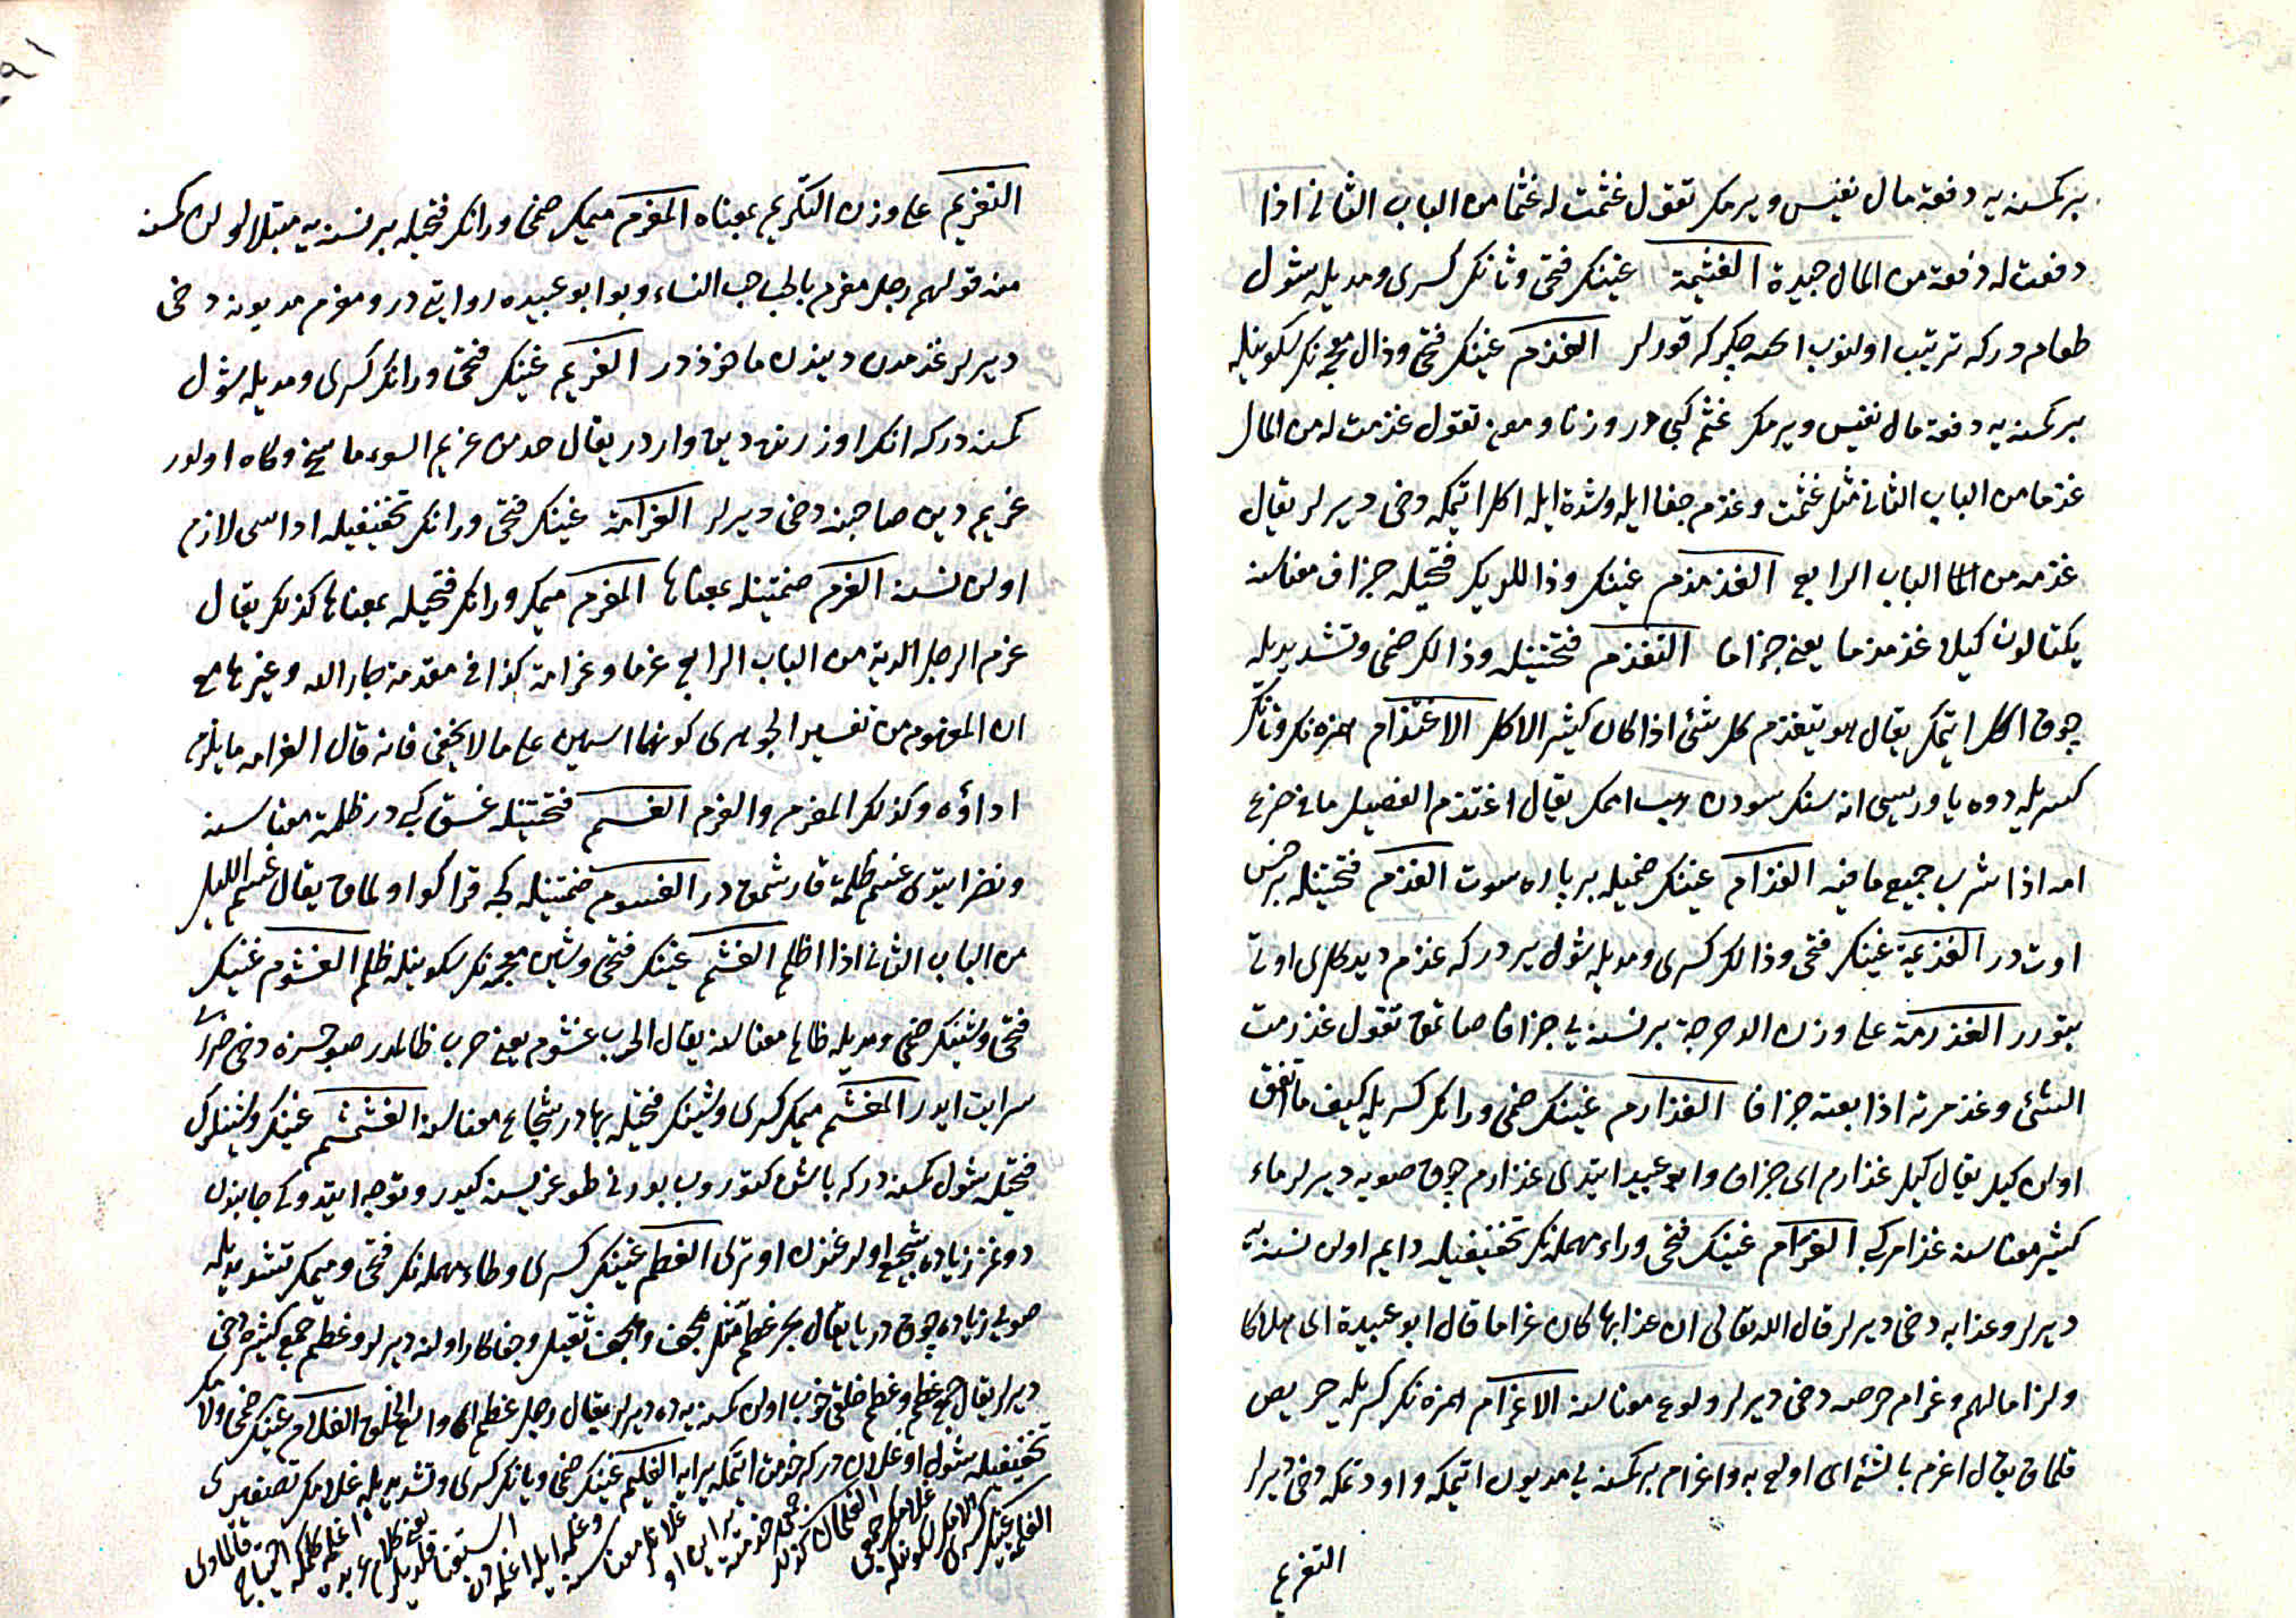 بر كمسنه يه دفعة مال نفيس ويرمك تقول غثمت له غثما من الباب الثانى اذا
دفعت له دفعة من المال جيدة الغثيمة غينك فتحى وثانك كسرى ومديله شول
طعام دركه ترتيب اولنوب ايچنه چكركه قورلر الغذم غينك فتحى وذال معجمه نك سكونيله
بر كمسنه يه دفعة مال نفيس ويرمك غثم كبى در وزنا ومعنى تقول غذمت له من المال
غذما من الباب الثانى مثل غثمت وغذم جفا ايله وشدة ايله اكل ايتمكه دخى ديرلر يقال
غذمه من الباب الرابع الغذمذم غينك وذاللريك فتحيله جزاف معناسنه
يكتالون كيلا غذمذما يعنى جزافا التغذم فتحتينله وذالك ضمى وتشديديله
چوق اكل ايتمك يقال هو يتغذم كل شئ اذا كان كثير الاكل الاغتذام همزه نك وتانك
كسريله دوه ياوريسى اناسنك سودن امك يقال اغتذم الفصيل ما فى ضرع
امه اذا شرب جميع ما فيه الغذام غينك ضميله بر پاره سوت الغذم فتحتينله بر جنس
اوت در الغذيمة غينك فتحى وذالك كسرى ومديله شول ير دركه غذم ديدكلرى اوتى
بتورر الغذرمة على وزن الدحرجة بر نسنه يى جزافا صاتمق تقول غذرمت
الشئ وغذمرته اذا بعته جزافا الغذارم غينك ضمى ورانك كسريله كيف ما اتفق
اولن كيل يقال كيل غذارم اى جزاف وابو عبيد ايتدى غذارم چوق صويه ديرلر ماء
كثير معناسنه غذامر كبى الغرام غينك فتحى وراء مهمله نك تخفيفيله دايم اولن نسنه يه
ديرلر وعذابه دخى ديرلر قال الله تعالى ان عذابها كان غراما قال ابو عبيدة اى هلاكا
ولزاما لهم وغرام حرصه دخى ديرلر ولوع معناسنه الاغرام همزه نك كسريله حريص
قلمق يقال اغرم بالشئ اى اولع به واغرام بر كمسنه يى مديون ايتمكه واودتمكه دخى ديرلر
التغريم
التغريم على وزن التكريم بمعناه المغرم ميمك ضمى ورانك فتحيله بر نسنه يه مبتلا اولن كمسنه
منه قولهم رجل مغرم بالحب حب النساء وبو ابو عبيده روايتى در ومغرم مديونه دخى
ديرلر غرمدن ديندن ماخوذدر الغريم غينك فتحى ورانك كسرى ومديله شول
كمسنه دركه انك اوزرينه دين واردر يقال خذ من غريم السوء ما سنح وكاه اولور
غريم دين صاحبنه دخى ديرلر الغرامة غينك فتحى ورانك تخفيفيله اداسى لازم
اولن نسنه الغرم ضمتينله بمعناها المغرم ميمك ورانك فتحيله بمعناها كذلك يقال
غرم الرجل الدية من الباب الرابع غرما وغرامة كذا فى مقدمة جار الله وغيرها مع
ان المفهوم من تفسير الجوهرى كونهما اسمين على ما لا يخفى فانه قال الغرامه ما يلزم
اداؤه وكذلك المغرم والغرم الغسم فتحتينله غسق كبى در ظلمة معناسنه
ونضر ايتدى غسم ظلمة قارشمق در الغسوم ضمتينله كجه قراكو اولمق يقال غسم الليل
من الباب الثانى اذا اظلم الغشم غينك فتحى وشين معجمه نك سكونيله ظلم الغشوم غينك
فتحى وشينك ضمى ومديله ظالم معناسنه يقال الحرب غشوم يعنى حرب ظالمدر صوچسزه دخى ضررى
سرايت ايدر المغشم ميمك كسرى وشينك فتحيله بهادر شجاع معناسنه الغشمشم غينك وشينلرك
فتحيله شول كمسنه دركه باشن كتوروب بورنى طوغريسنه كيدر وتوجه ايتدوكى جانبدن
دونمز زياده شجيع اولدوغندن اوترى الغطم غينك كسرى وطاء مهمله نك فتحى وميمك تشديديله
صويى زياده چوق دريا يقال بحر غطم مثل هجف والهجف ثقيل وجفاكار اولنه ديرلر وغطم جمع كثيره دخى
ديرلر يقال جمع غطم وغطم خلقى خوب اولن كمسنه يه ده ديرلر يقال رجل غطم اى واسع الخلق الغلام غينك ضمى ولامك
تخفيفيله شول اوغلان دركه خدمت ايتمكه يرايه الغليم غينك ضمى ويانك كسرى وتشديديله غلامك تصغيرى
الغلمة غينك كسرى ولامك سكونيله غلامك جمعى الغلمان كذلك